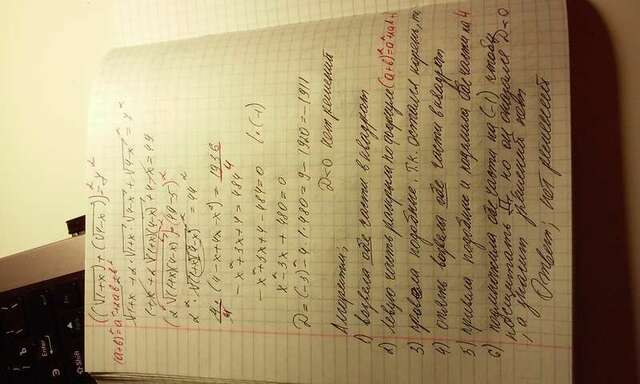 Enter
Shift
((√1+x) + (√4-x))² = 7²
(a+b)² = a²+2ab+b²
√1+x² + 2·√1+x · √4-x + √4-x² = 7²
1+x + 2√(1+x)(4-x) + 4-x = 49
(2√(1+x)(4-x))² = (49-5)²
2² · √(1+x)(4-x)² = 44²
4·/4 (4-x+4x-x²) = 1936/4
-x²+3x+4 = 484
-x²+3x+4-484=0 |·(-1)
x²-3x+480=0
D=(-3)²-4·1·480=9-1920=-1911
D<0 нет решений
Алгоритм;
1) возвела обе части в квадрат
2) левую часть раскрыла по формуле (a+b)²=a²+2ab+
3) привела подобные, т.к. остался корень, то
4) опять возвела обе части в квадрат
5) привела подобные и поделила обе части на 4
6) подмножила обе части на (-1) чтобы
расщитать но он оказался D<0
, а значит решений нет
Ответ; нет решений